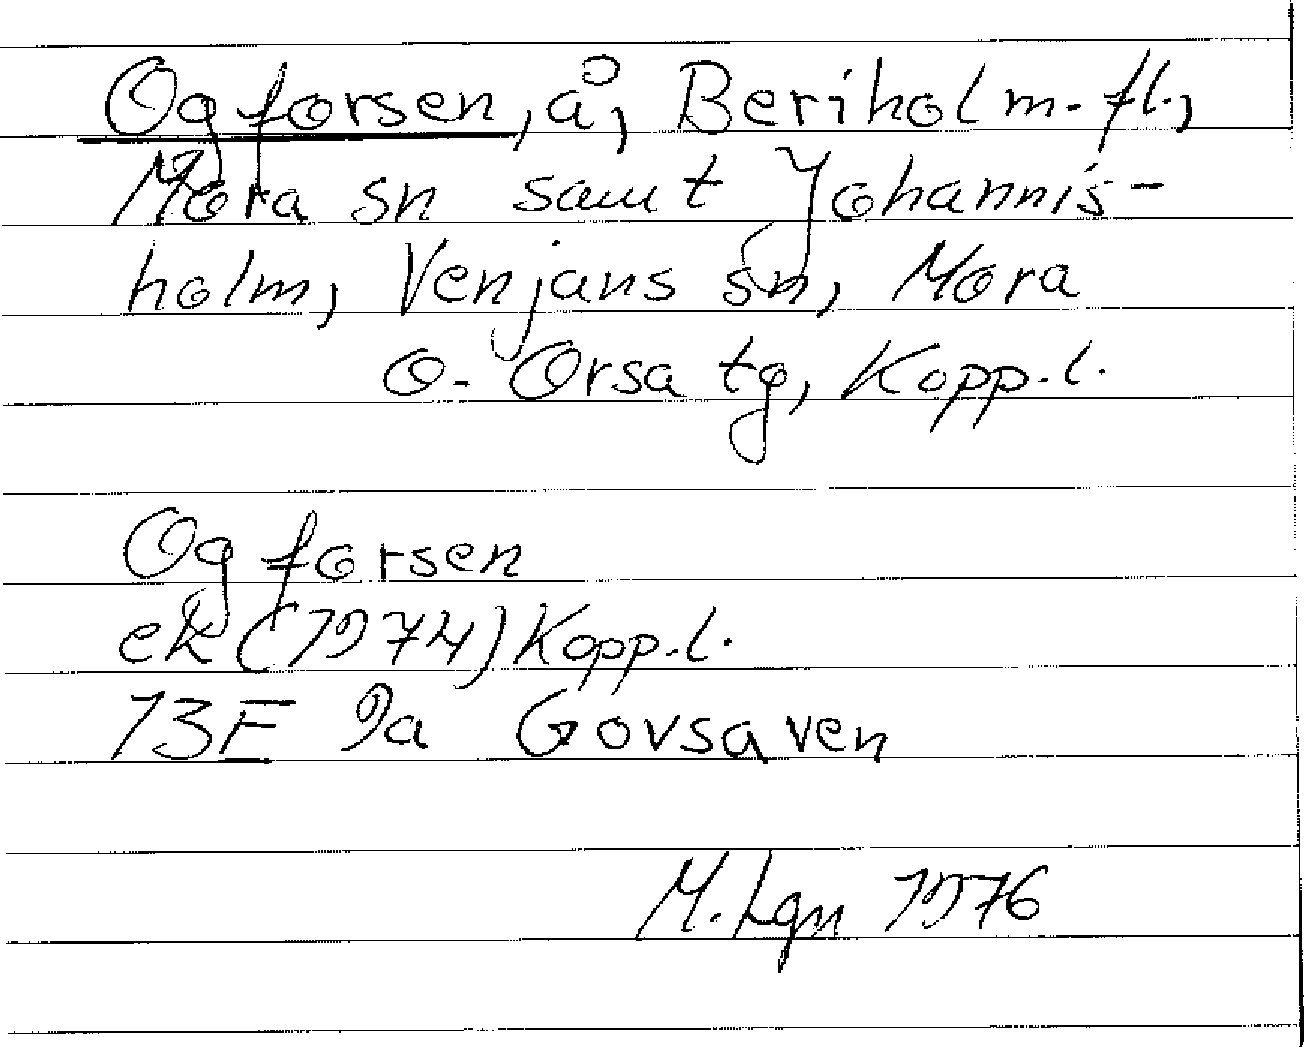 Ogforsen, å, Beriholm-fl.,
Mora sn samt Johannis-
holm, Venjans sn, Mora
o. Orsa tg, Kopp.l.
Ogforsen
ek (1974) Kopp.l.
13E 9a Govsaven
M. Lgn 1976